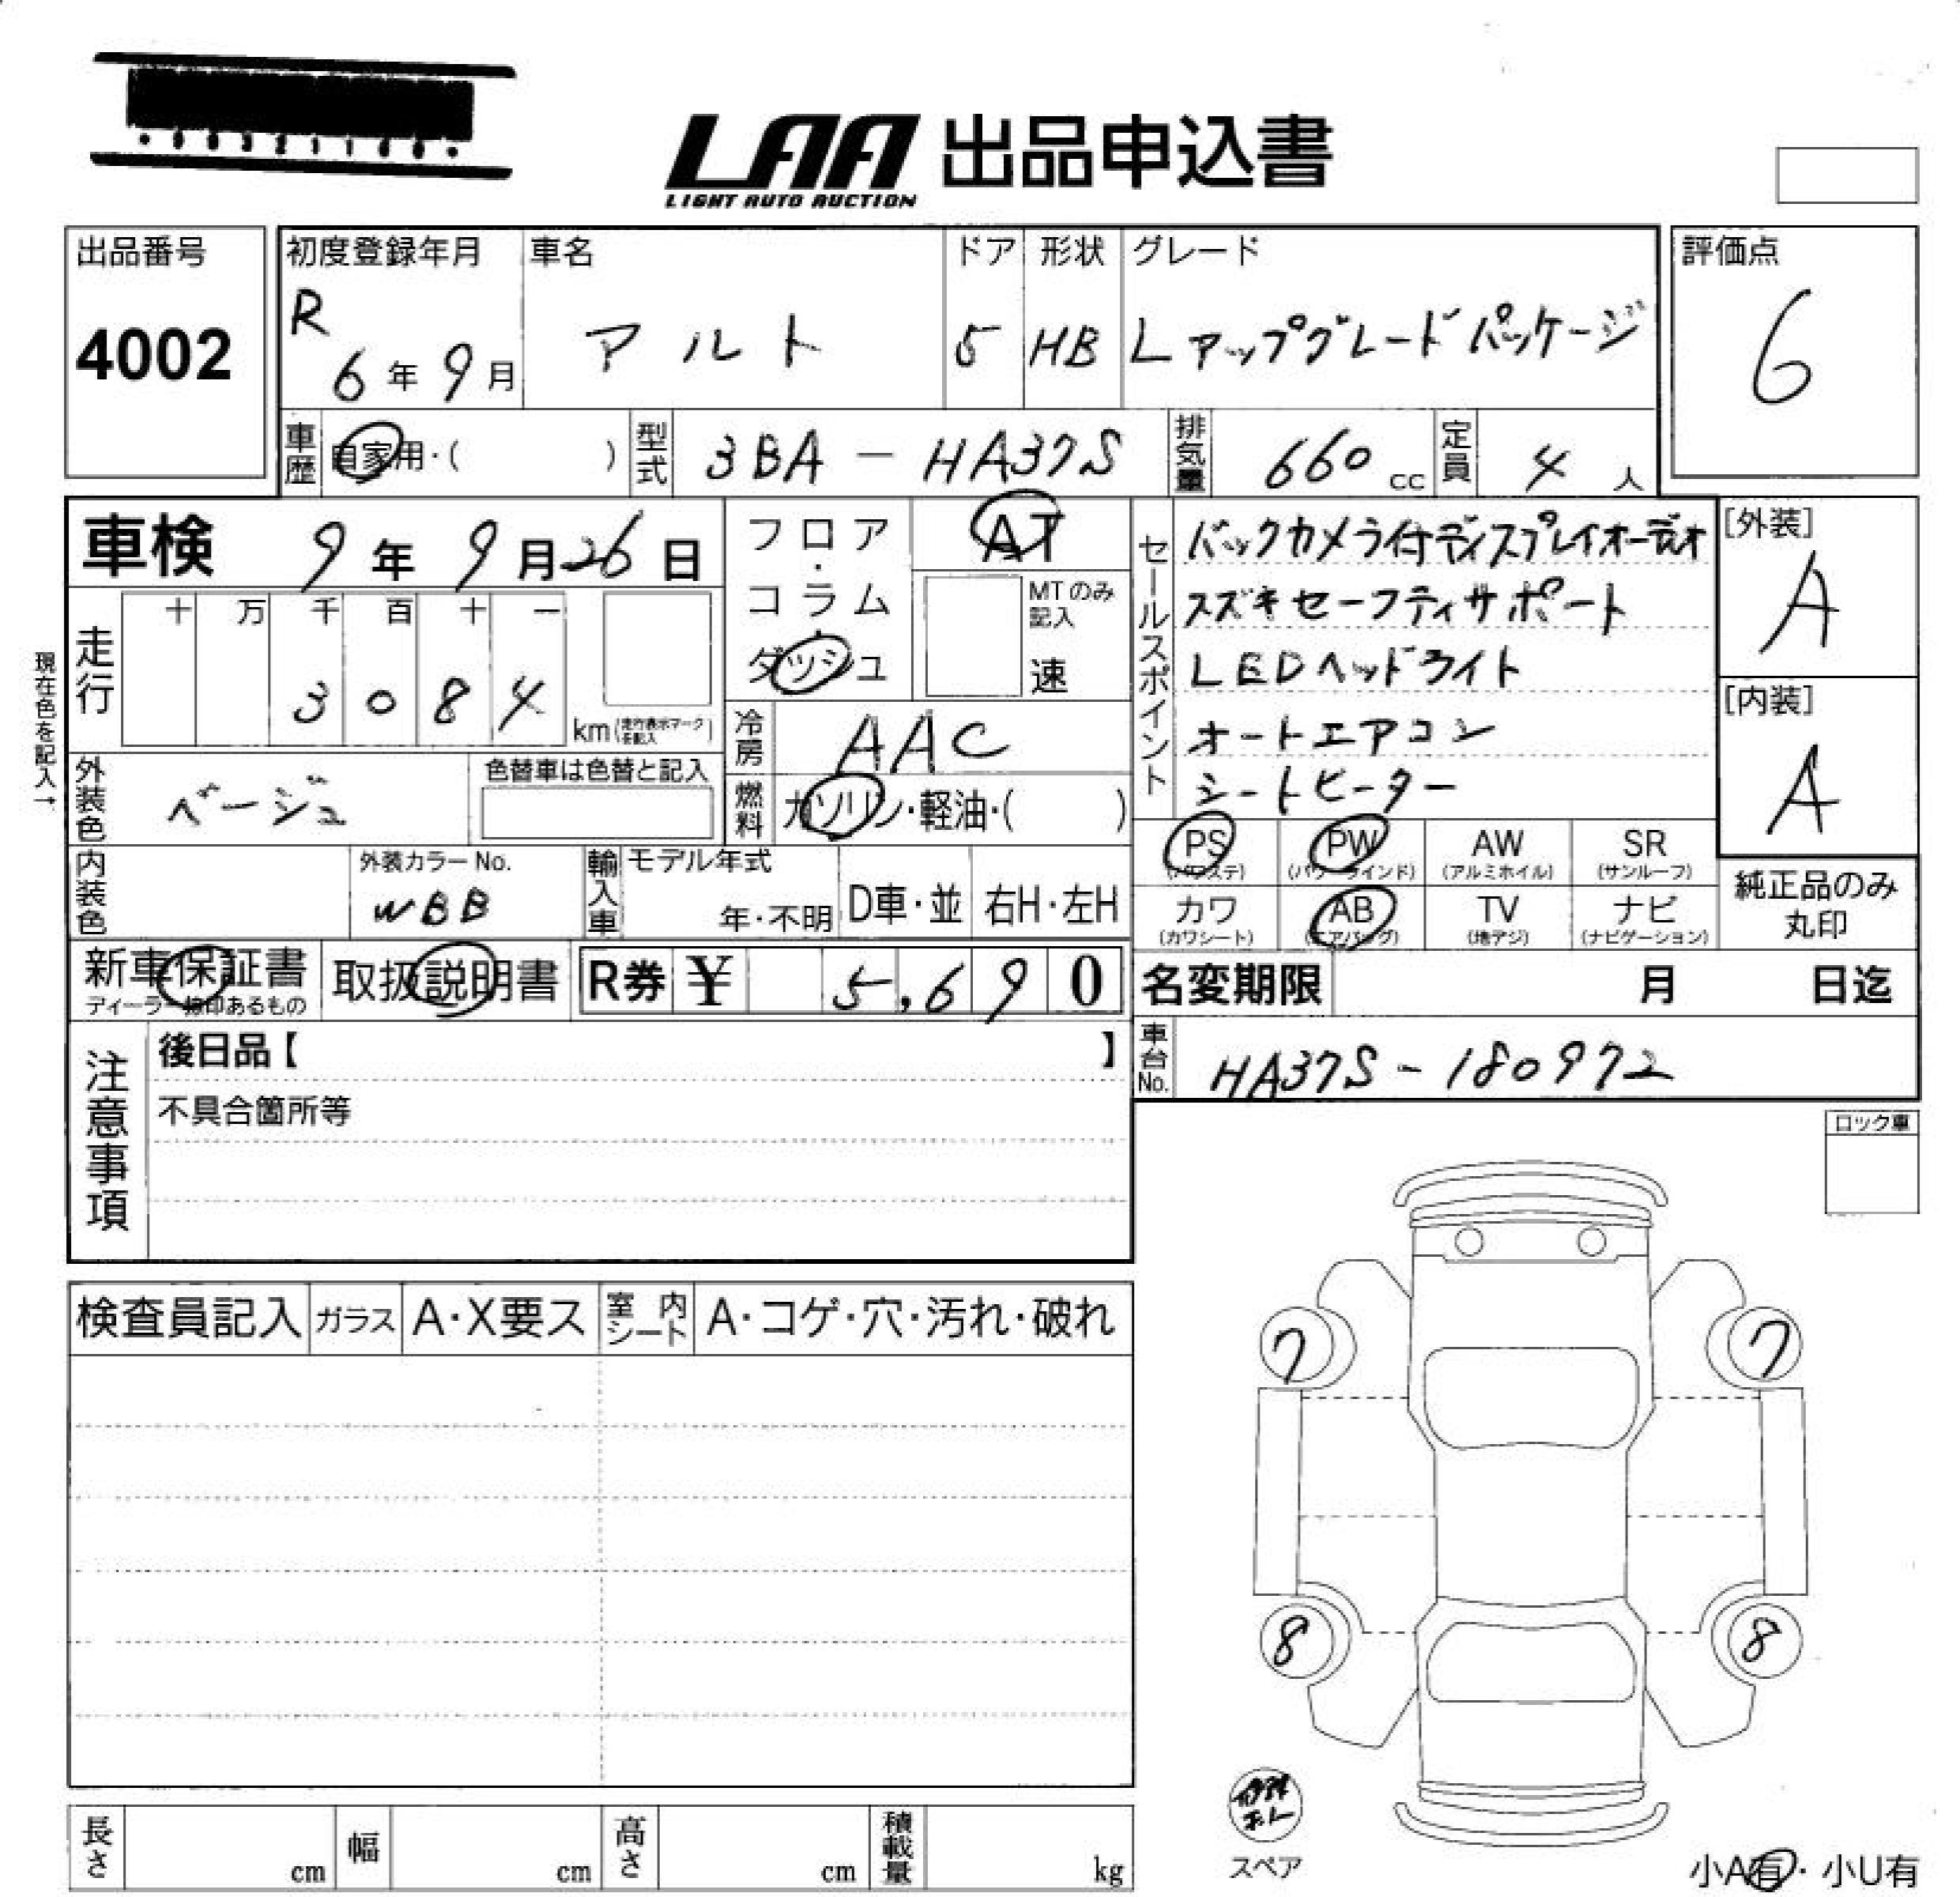 LAA 出品申込書
LIGHT AUTO AUCTION
出品番号
4002
初度登録年月
R
6年9月
車名
アルト
ドア
5
形状
HB
グレード
Lアップグレードパッケージ
評価点
6
車歴
自家用・( )
型式
3BA-HA37S
排気量
660cc
定員
4人
車検 9年9月26日
現在色を記入→
走行
十万千百十一
3084
km(走行表示マークを記入)
フロア・コラム・ダッシュ
AT
MTのみ記入
速
冷房
AAC
燃料
ガソリン・軽油・( )
セールスポイント
バックカメラ付ディスプレイオーディオ
スズキセーフティサポート
LEDヘッドライト
オートエアコン
シートヒーター
[外装]
A
[内装]
A
外装色
ベージュ
色替車は色替と記入
内装色
外装カラーNo.
WBB
輸入車
モデル年式
年・不明
D車・並
右H・左H
PS
(パワステ)
PW
(パワーウインド)
AW
(アルミホイル)
SR
(サンルーフ)
カワ
(カワシート)
AB
(エアバッグ)
TV
(地デジ)
ナビ
(ナビゲーション)
純正品のみ
丸印
新車保証書
ディーラー捺印あるもの
取扱説明書
R券 ¥ 5,690
名変期限 月 日迄
車台No.
HA37S-180972
注意事項
後日品【 】
不具合箇所等
ロック車
検査員記入
ガラス
A・X要ス
室内シート
A・コゲ・穴・汚れ・破れ
7
7
8
8
スペア
小A有・小U有
長さ cm
幅 cm
高さ cm
積載量 kg